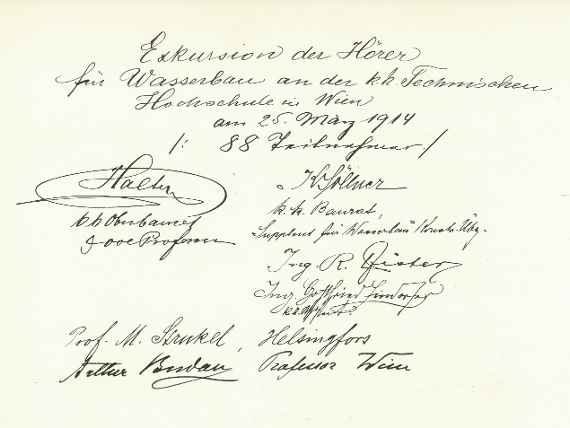 Exkursion der Hörer
für Wasserbau an der kk Technischen
Hochschule in Wien
am 25. März 1914
/: 88 Teilnehmer :/
Halter
k k Oberbaurat
Professor
k. k. Baurat,
Supplent für Wasserbau
Ing. R.
Ing. Gottfried Lindorfer
Prof. M. Strukel, Helsingfors
Arthur Budau Professor Wien